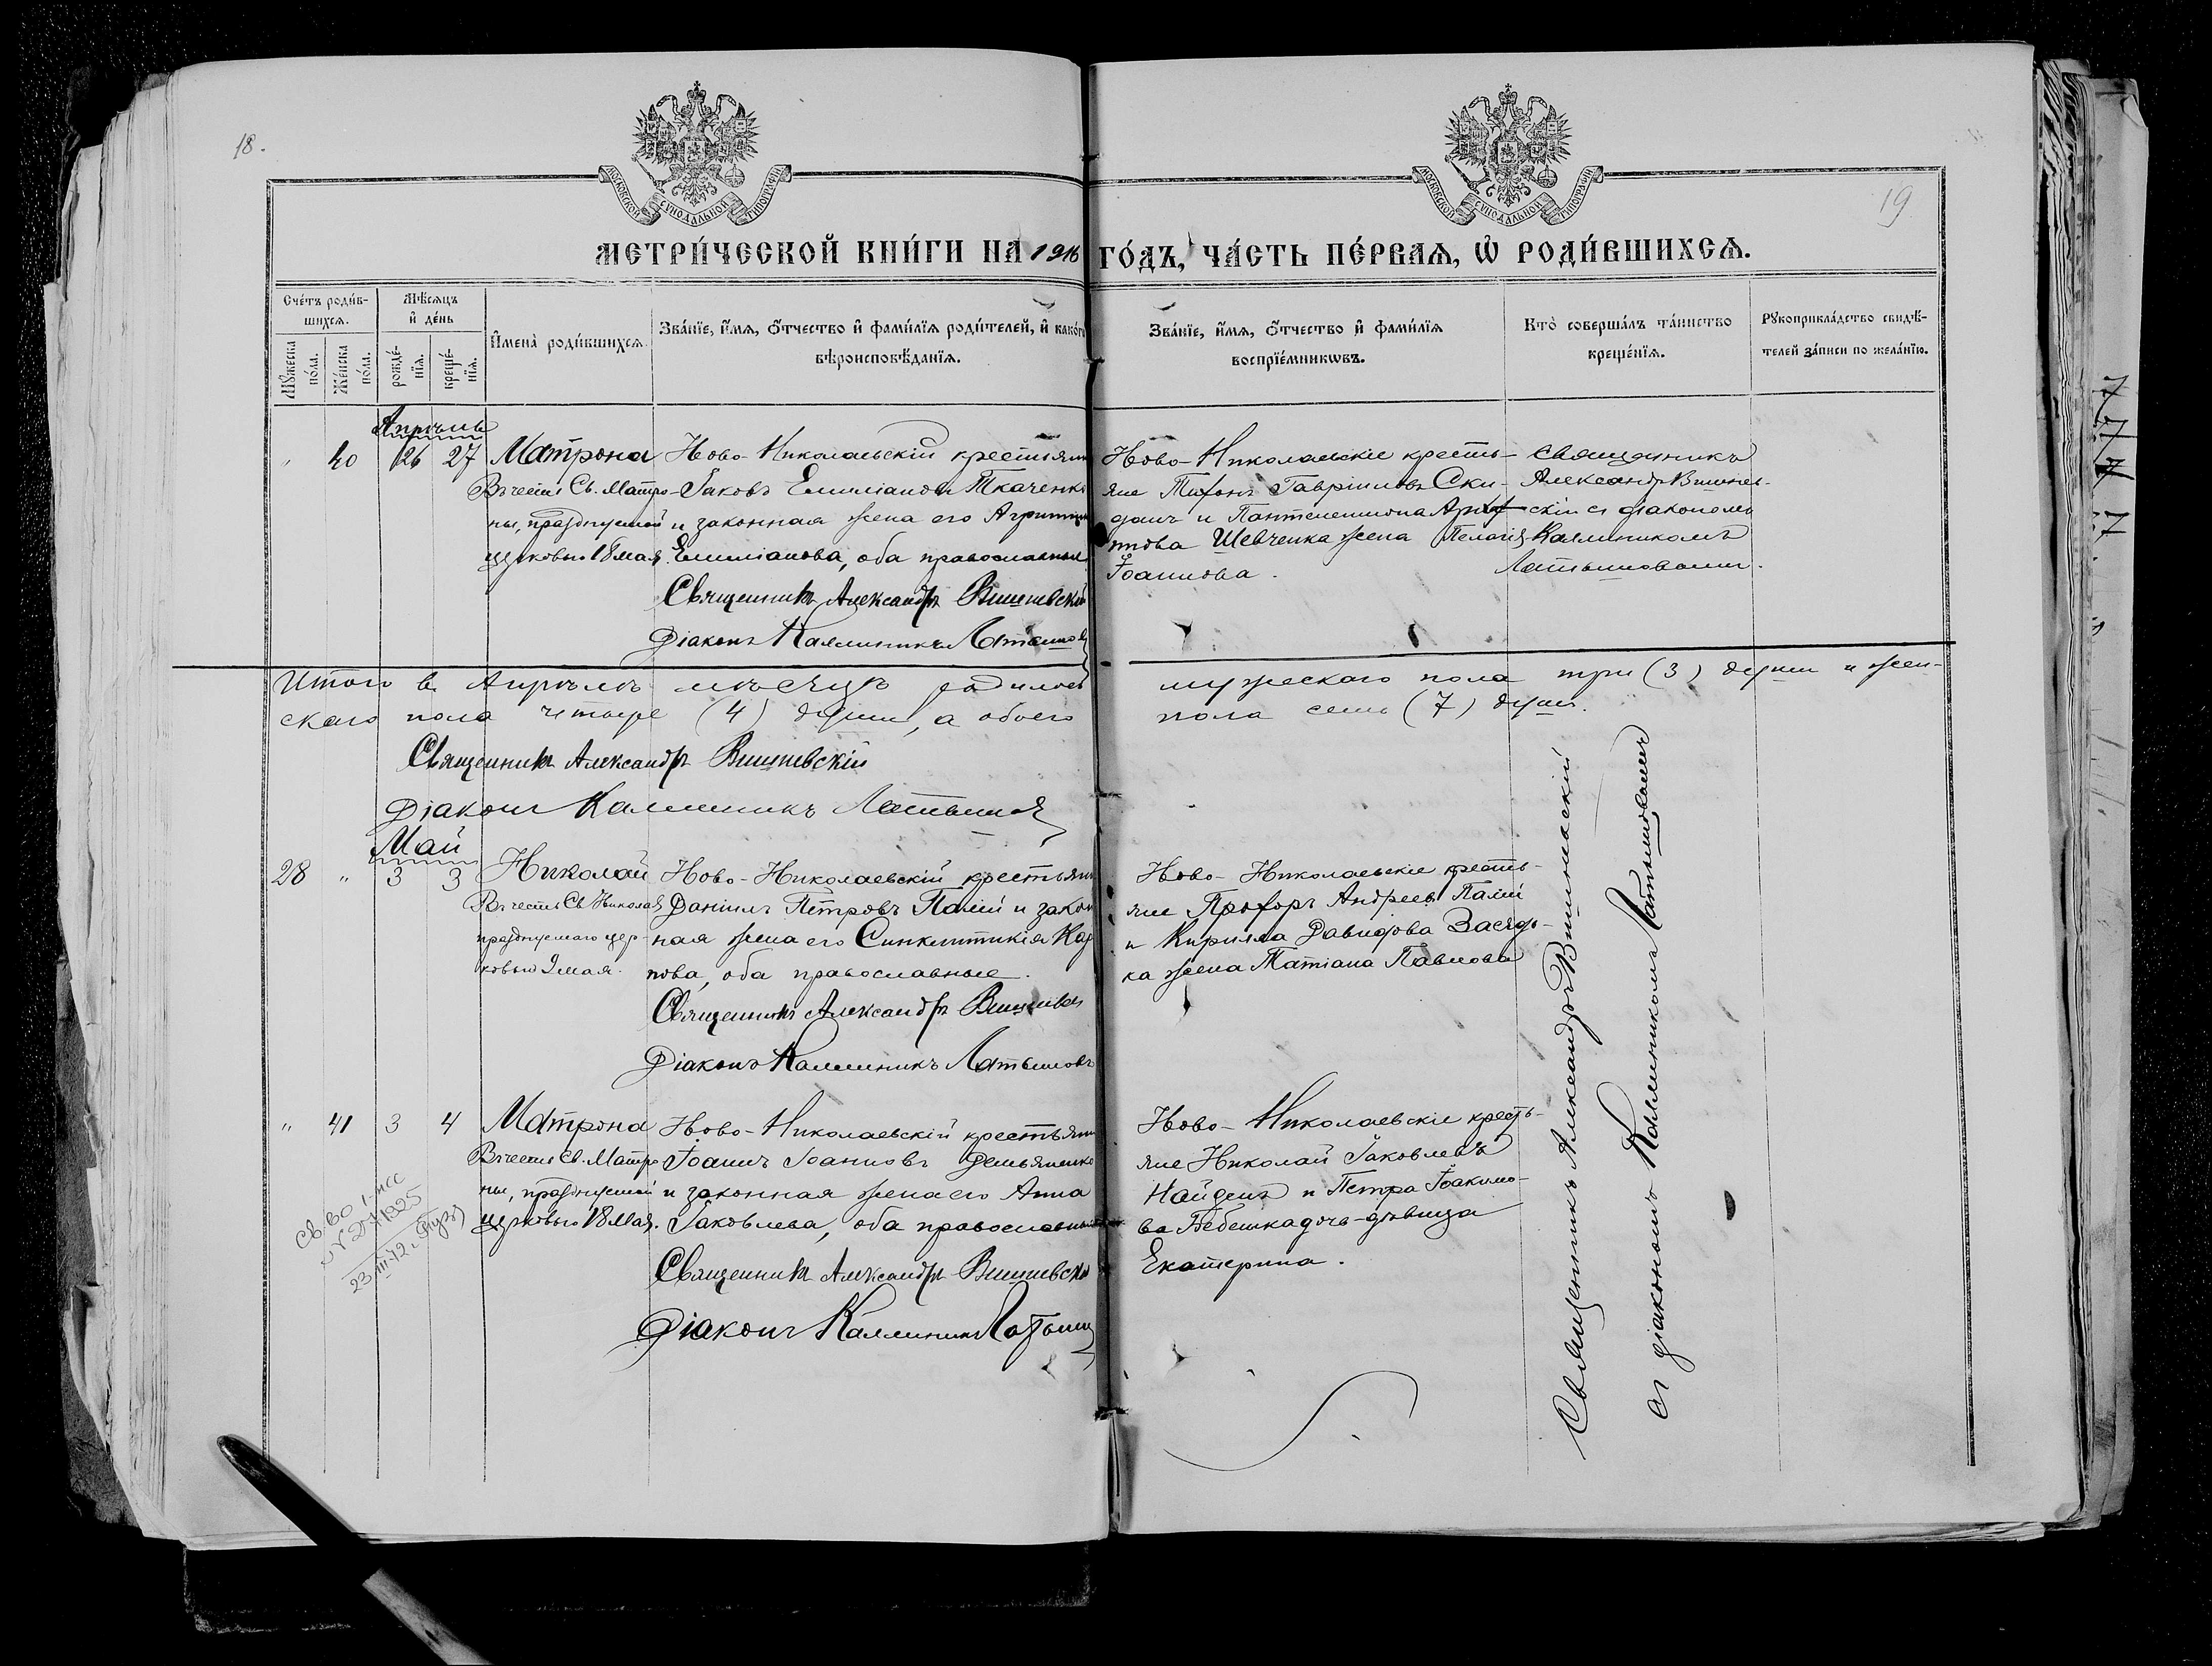 18.
19
МОСКОВСКОЙ СУНОДАЛЬНОЙ ТИПОГРАФІИ
МОСКОВСКОЙ СУНОДАЛЬНОЙ ТИПОГРАФІИ
МЕТРИ́ЧЕСКОЙ КНИ́ГИ НА 1916 ГО́ДЪ, ЧА́СТЬ ПЕ́РВАѦ, Ѡ҆ РОДИ́ВШИХСѦ.
Сче́тъ роди́в-
шихсѧ.
Мꙋ́жеска по́ла.
Же́нска по́ла.
Мѣ́сѧцъ
и҆ де́нь
рожде́-
нїѧ.
креще́-
нїѧ.
И҆мена̀ роди́вшихсѧ.
Зва́нїе, и҆́мѧ, ѻ҆́тчество и҆ фами́лїѧ роди́телей, и҆ како́гѡ
вѣроисповѣ́данїѧ.
Зва́нїе, и҆́мѧ, ѻ҆́тчество и҆ фами́лїѧ
воспрїе́мникѡвъ.
Кто̀ соверша́лъ та́инство
креще́нїѧ.
Рꙋкоприкла́дство свидѣ́-
телей за́писи по жела́нїю.
Апрѣль
" 40 26 27 Матрона
Въ честь Св. Матро-
ны, празднуемой
церковью 18 мая.
Ново-Николаевскій крестьянин
Іаковъ Емиліановъ Ткаченко
и законная жена его Агриппина
Емиліанова, оба православные.
Священникъ Александръ Вишневскій
Діаконъ Каллиникъ Латышовъ
Ново-Николаевскіе кресть-
яне Тихонъ Гавріиловъ Ски-
данъ и Пантелеимона
Шевченка жена Пелагія
Іоаннова.
Священникъ
Александръ Вишнев-
скій съ діакономъ
Каллиникомъ
Латышовымъ.
Итого въ Апрѣлѣ мѣсяцѣ родилось мужескаго пола три (3) души и жен-
скаго пола четыре (4) души, а обоего пола семь (7) душъ.
Священникъ Александръ Вишневскій
Діаконъ Каллиникъ Латышовъ
Май
28 " 3 3 Николай
Въ честь Св. Николая
празднуемаго цер-
ковью 9 мая.
Ново-Николаевскій крестьянин
Даніилъ Петровъ Палій и закон
ная жена его Синклитикія Кар
пова, оба православные.
Священникъ Александръ Вишневс
Діаконъ Каллиникъ Латышовъ
Ново-Николаевскіе кресть-
яне Прохоръ Андреевъ Палій
и Кирилла Давидова Засядь-
ка жена Татіана Павлова
" 41 3 4 Матрона
Въ честь Св. Матро
ны, празднуемой
церковью 18 мая.
Ново-Николаевскій крестьянин
Іоаннъ Іоанновъ Демьяненко
и законная жена его Анна
Іаковлева, оба православные
Священникъ Александръ Вишневско
Діаконъ Каллиникъ Латышо
Ново-Николаевскіе кресть-
яне Николай Іаковлевъ
Найденъ и Петра Іоакимо-
ва Бебешка дочь-дѣвица
Екатерина.
Священникъ Александръ Вишневскій
съ діакономъ Каллиникомъ Латышовымъ